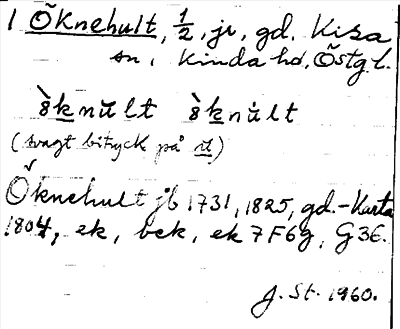 1 Öknehult, 1/2, jr, gd. Kisa
sn, Kinda hd, Östg l.
ö̀knŭlt ö̀knu̇lt
(svagt bitryck på ult)
Öknehult jb 1731, 1825, gd. - Karta
1804, ek, bek, ek 7F6g, G36.
J. St. 1960.